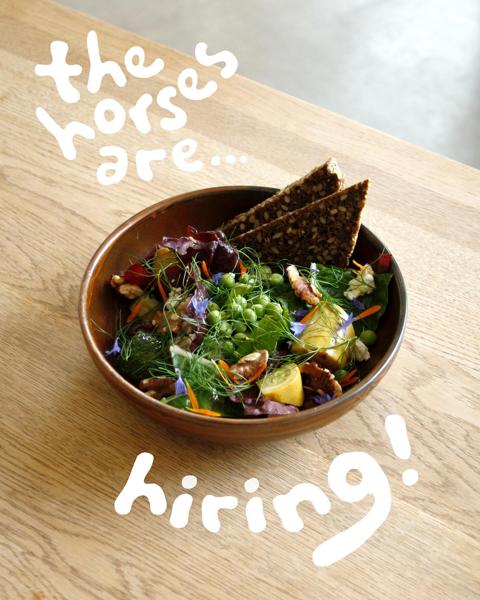 the
horses
are...
hiring!